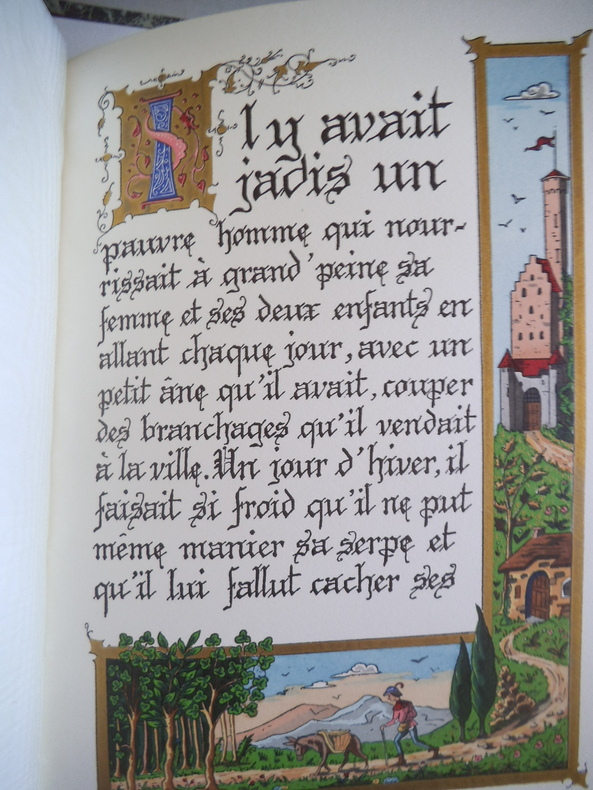 Il y avait
jadis un
pauvre homme qui nour-
rissait à grand'peine sa
femme et ses deux enfants en
allant chaque jour, avec un
petit âne qu'il avait, couper
des branchages qu'il vendait
à la ville. Un jour d'hiver, il
faisait si froid qu'il ne put
même manier sa serpe et
qu'il lui fallut cacher ses